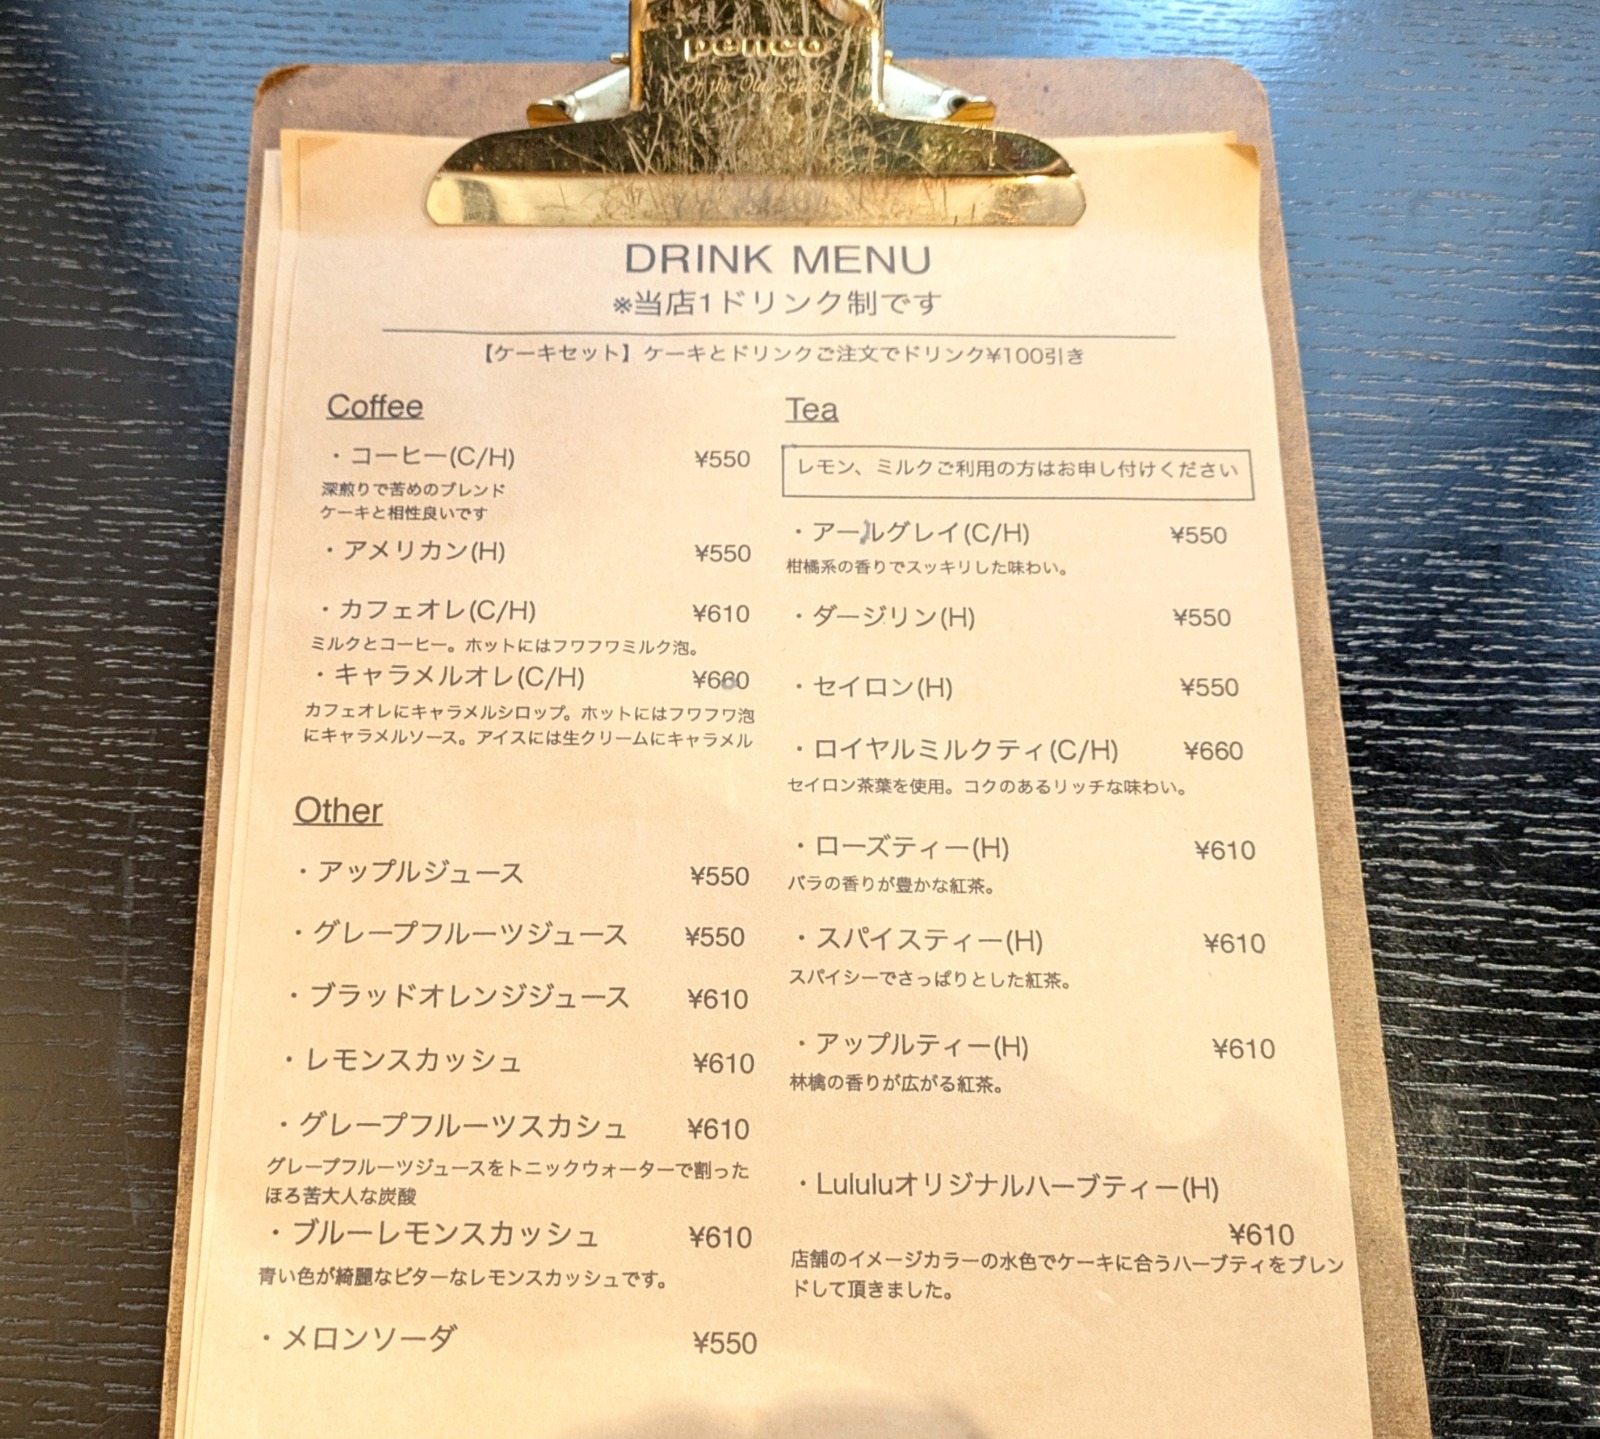 penco
On the Old School.
DRINK MENU
※当店1ドリンク制です
【ケーキセット】ケーキとドリンクご注文でドリンク¥100引き
Coffee
・コーヒー(C/H) ¥550
深煎りで苦めのブレンド
ケーキと相性良いです
・アメリカン(H) ¥550
・カフェオレ(C/H) ¥610
ミルクとコーヒー。ホットにはフワフワミルク泡。
・キャラメルオレ(C/H) ¥660
カフェオレにキャラメルシロップ。ホットにはフワフワ泡
にキャラメルソース。アイスには生クリームにキャラメル
Other
・アップルジュース ¥550
・グレープフルーツジュース ¥550
・ブラッドオレンジジュース ¥610
・レモンスカッシュ ¥610
・グレープフルーツスカシュ ¥610
グレープフルーツジュースをトニックウォーターで割った
ほろ苦大人な炭酸
・ブルーレモンスカッシュ ¥610
青い色が綺麗なビターなレモンスカッシュです。
・メロンソーダ ¥550
Tea
レモン、ミルクご利用の方はお申し付けください
・アールグレイ(C/H) ¥550
柑橘系の香りでスッキリした味わい。
・ダージリン(H) ¥550
・セイロン(H) ¥550
・ロイヤルミルクティ(C/H) ¥660
セイロン茶葉を使用。コクのあるリッチな味わい。
・ローズティー(H) ¥610
バラの香りが豊かな紅茶。
・スパイスティー(H) ¥610
スパイシーでさっぱりとした紅茶。
・アップルティー(H) ¥610
林檎の香りが広がる紅茶。
・Lululuオリジナルハーブティー(H)
¥610
店舗のイメージカラーの水色でケーキに合うハーブティをブレン
ドして頂きました。